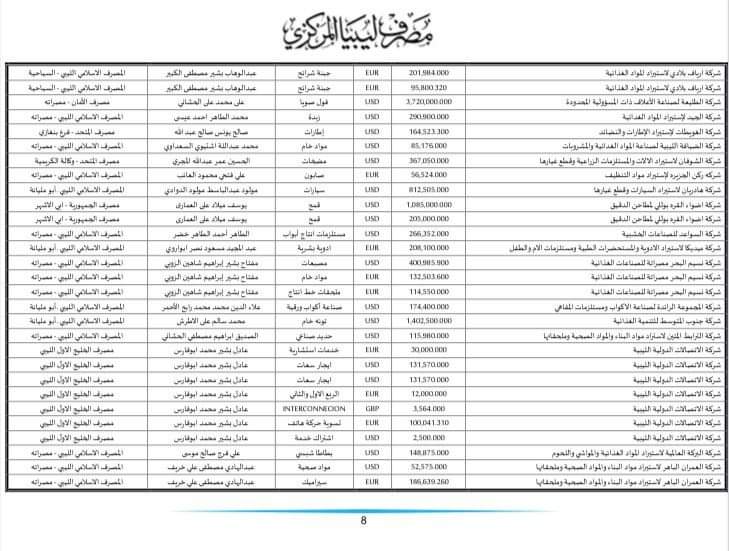 مصرف ليبيا المركزي
شركة ارياف بلادي لاستيراد المواد الغذائية 201,984.000 EUR جبنة شرائح عبدالوهاب بشير مصطفى الكبير المصرف الاسلامي الليبي - السياحية
شركة ارياف بلادي لاستيراد المواد الغذائية 95,800.320 EUR جبنة شرائح عبدالوهاب بشير مصطفى الكبير المصرف الاسلامي الليبي - السياحية
شركة الطليعة لصناعة الأعلاف ذات المسؤولية المحدودة 3,720,000.000 USD فول صويا علي محمد علي الخشاني مصرف الأمان - مصراته
شركة الجيد لإستيراد المواد الغذائية 290,900.000 USD زبدة محمد الطاهر احمد عيسى المصرف الاسلامي الليبي - مصراته
شركة الغويطات لإستيراد الإطارات والنضائد 164,523.300 USD إطارات صالح يونس صالح عبد الله مصرف المتحد - فرع بنغازي
شركة الضيافة الليبية لصناعة المواد الغذائية والمشروبات 85,176.000 USD مواد خام محمد عبدالله اشتيوي السعداوي المصرف الاسلامي الليبي - مصراته
شركة الشوفان لاستيراد الالات والمستلزمات الزراعية وقطع غيارها 367,050.000 USD مضخات الحسين عمر عبدالله المجري مصرف المتحد - وكالة الكريمية
شركه ركن الجزيره لإستيراد مواد التنظيف 56,524.000 EUR صابون علي فتحي محمود العاتب المصرف الاسلامي الليبي - مصراته
شركة هادريان لاستيراد السيارات وقطع غيارها 812,505.000 USD سيارات مولود عبدالباسط مولود الدوادي المصرف الاسلامي الليبي - أبو مليانة
شركة اضواء القره بوللي لمطاحن الدقيق 1,085,000.000 USD قمح يوسف ميلاد علي العماري مصرف الجمهورية - ابي الاشهر
شركة اضواء القره بوللي لمطاحن الدقيق 205,000.000 USD قمح يوسف ميلاد علي العماري مصرف الجمهورية - ابي الاشهر
شركة السواعد للصناعات الخشبية 266,352.000 USD مستلزمات انتاج أبواب الطاهر أحمد الطاهر خضر المصرف الاسلامي الليبي - مصراته
شركة ميديكا لاستيراد الأدوية والمستحضرات الطبية ومستلزمات الام والطفل 208,100.000 EUR ادوية بشرية عبد المجيد مسعود نصر ابوراوي المصرف الاسلامي الليبي - أبو مليانة
شركة نسيم البحر مصراتة للصناعات الغذائية 400,985.900 USD مصبعات مفتاح بشير إبراهيم شاهين الزوبي المصرف الاسلامي الليبي - مصراته
شركة نسيم البحر مصراتة للصناعات الغذائية 132,503.600 EUR مواد خام مفتاح بشير إبراهيم شاهين الزوبي المصرف الاسلامي الليبي - مصراته
شركة نسيم البحر مصراتة للصناعات الغذائية 114,550.000 EUR ملحقات خط انتاج مفتاح بشير إبراهيم شاهين الزوبي المصرف الاسلامي الليبي - مصراته
شركة المجموعة الرائدة لصناعة الأكواب ومستلزمات المقاهي 174,400.000 USD صناعة أكواب ورقية علاء الدين محمد محمد رابح الأحمر المصرف الاسلامي الليبي - أبو مليانة
شركة جنوب المتوسط للتنمية الغذائية 1,402,500.000 USD تونه خام محمد سالم علي الاطرش المصرف الاسلامي الليبي - أبو مليانة
شركة الترابط المتين لاستراد مواد البناء والمواد الصحية وملحقاتها 115,980.000 USD حديد صناعي الصديق ابراهيم مصطفى الخشاني المصرف الاسلامي الليبي - مصراته
شركة الاتصالات الدولية الليبية 30,000.000 EUR خدمات استشارية عادل بشير محمد ابوفارس مصرف الخليج الاول الليبي
شركة الاتصالات الدولية الليبية 131,570.000 USD ايجار سعات عادل بشير محمد ابوفارس مصرف الخليج الاول الليبي
شركة الاتصالات الدولية الليبية 131,570.000 USD ايجار سعات عادل بشير محمد ابوفارس مصرف الخليج الاول الليبي
شركة الاتصالات الدولية الليبية 12,000.000 EUR الربع الاول والثاني عادل بشير محمد ابوفارس مصرف الخليج الاول الليبي
شركة الاتصالات الدولية الليبية 3,564.000 GBP INTERCONNECION عادل بشير محمد ابوفارس مصرف الخليج الاول الليبي
شركة الاتصالات الدولية الليبية 100,041.310 EUR تسوية حركة هاتف عادل بشير محمد ابوفارس مصرف الخليج الاول الليبي
شركة الاتصالات الدولية الليبية 2,500.000 USD اشتراك خدمة عادل بشير محمد ابوفارس مصرف الخليج الاول الليبي
شركة البركة العالمية لاستيراد المواد الغذائية والمواشي واللحوم 148,875.000 USD بطاطا شبسي علي فرج صالح موسى المصرف الاسلامي الليبي - مصراته
شركة العمران الباهر لاستيراد مواد البناء والمواد الصحية وملحقاتها 52,575.000 USD مواد صحية عبدالهادي مصطفى علي خريف المصرف الاسلامي الليبي - مصراته
شركة العمران الباهر لاستيراد مواد البناء والمواد الصحية وملحقاتها 186,639.260 EUR سيراميك عبدالهادي مصطفى علي خريف المصرف الاسلامي الليبي - مصراته
8